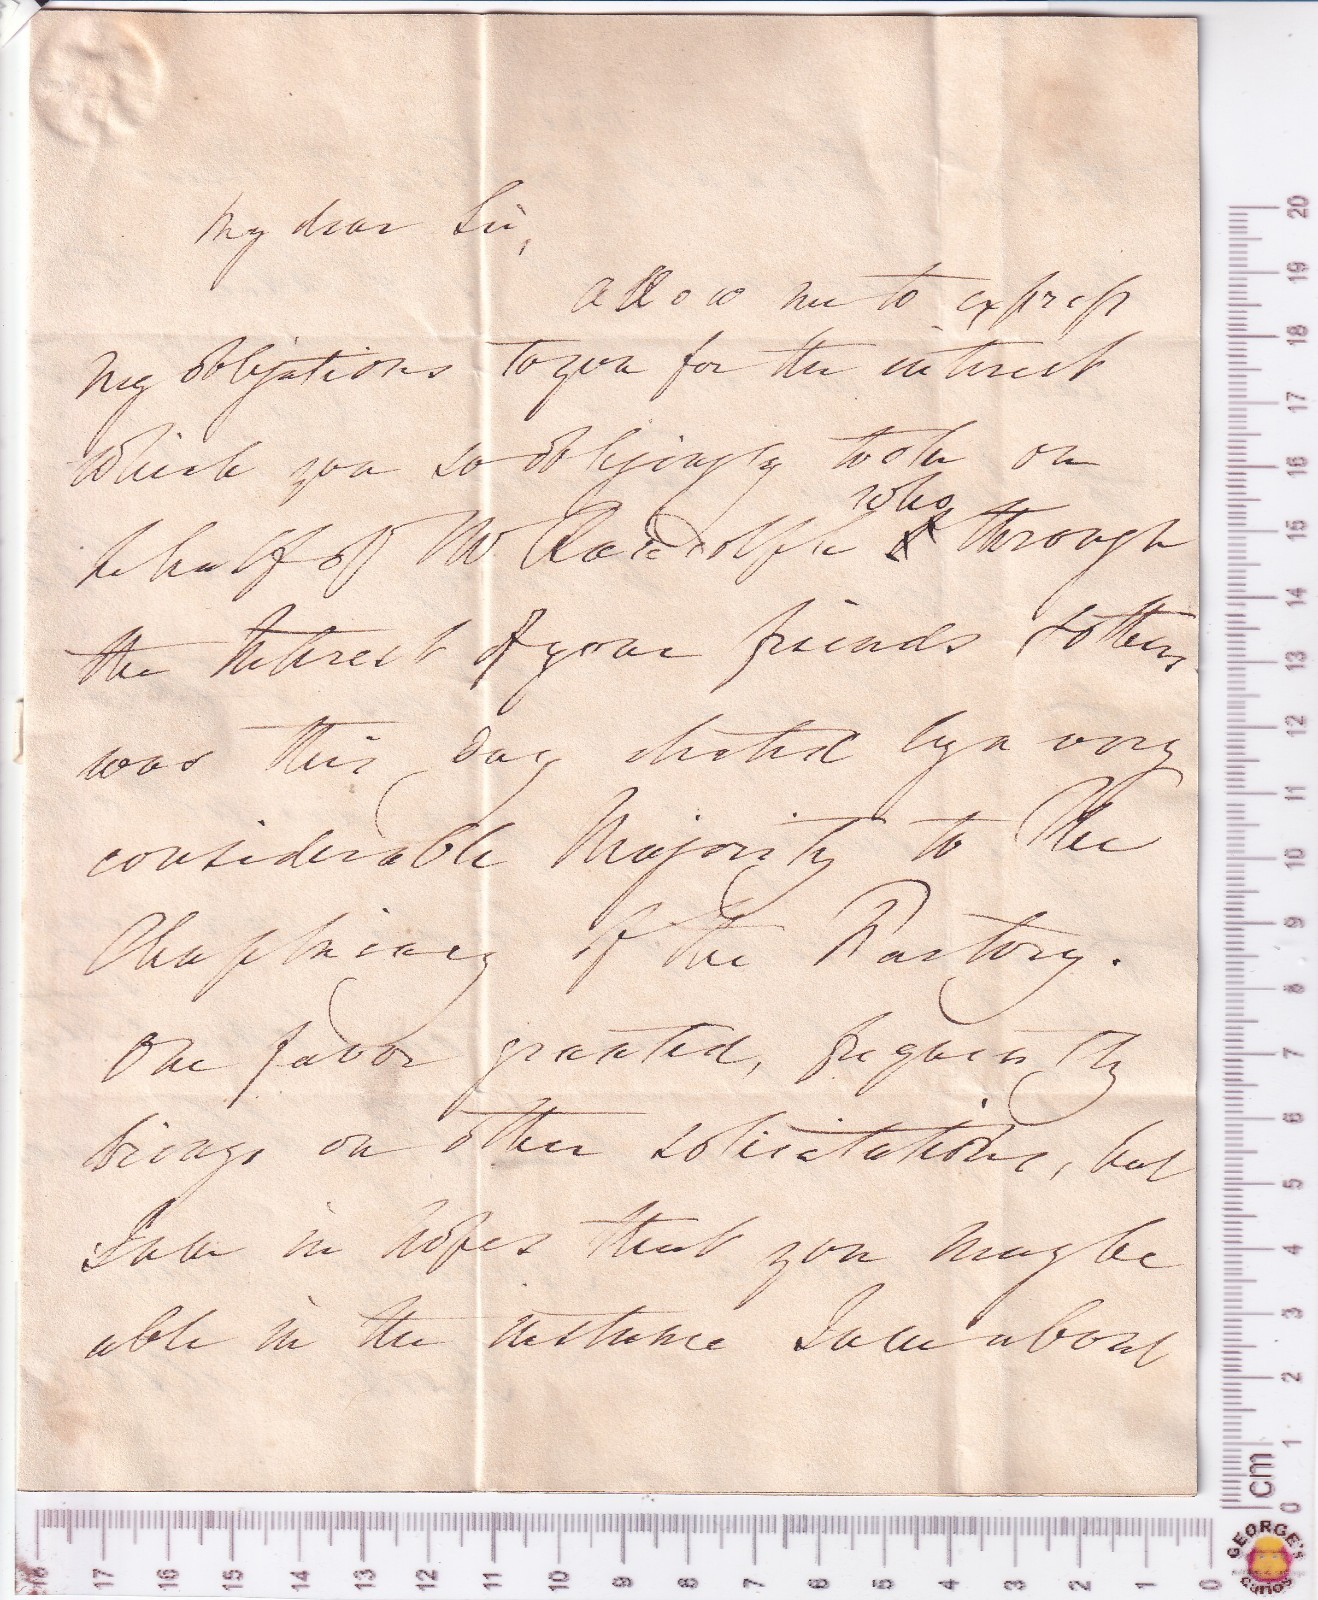 My dear Sir,
Allow me to express
my obligations to you for the interest
which you so obligingly took on
behalf of Mr Randolph who through
the Interest of your friends & others
was this day elected by a very
considerable Majority to the
Chaplaincy of the Factory.
One favor granted, frequently
brings on other solicitations, but
I am in hopes that you may be
able in the instance I am about
20
19
18
17
16
15
14
13
12
11
10
9
8
7
6
5
4
3
2
1
0
cm
18 17 16 15 14 13 12 11 10 9 8 7 6 5 4 3 2 1 0
GEORGE's
curios